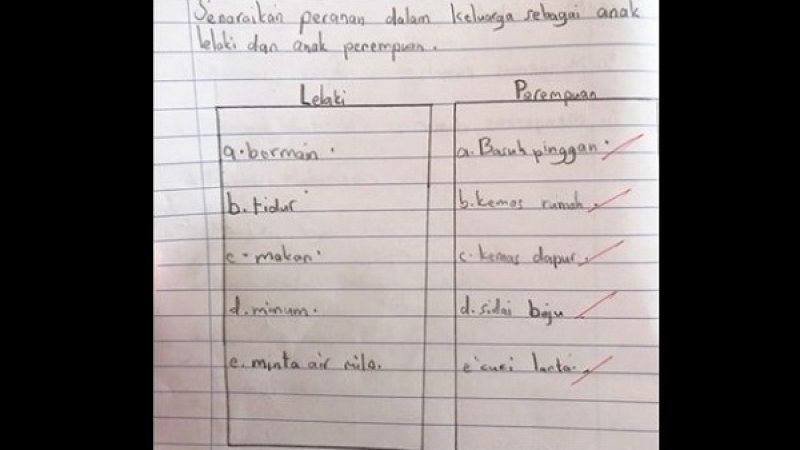 Senaraikan peranan dalam keluarga sebagai anak
lelaki dan anak perempuan.
Lelaki
a. bermain.
b. tidur
c. makan
d. minum.
e. minta air milo.
Perempuan
a. Basuh pinggan.
b. kemas rumah.
c. kemas dapur.
d. sidai baju
e cuci lantai.